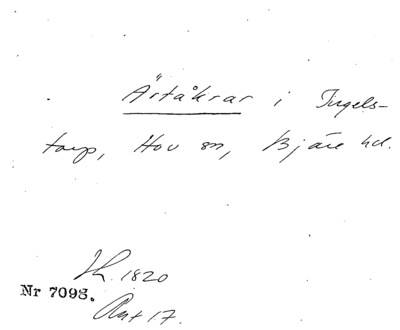 Ärtåkrar i Ingels-
torp, Hov sn, Bjäre hd.
1820
Nr 7098.
17.